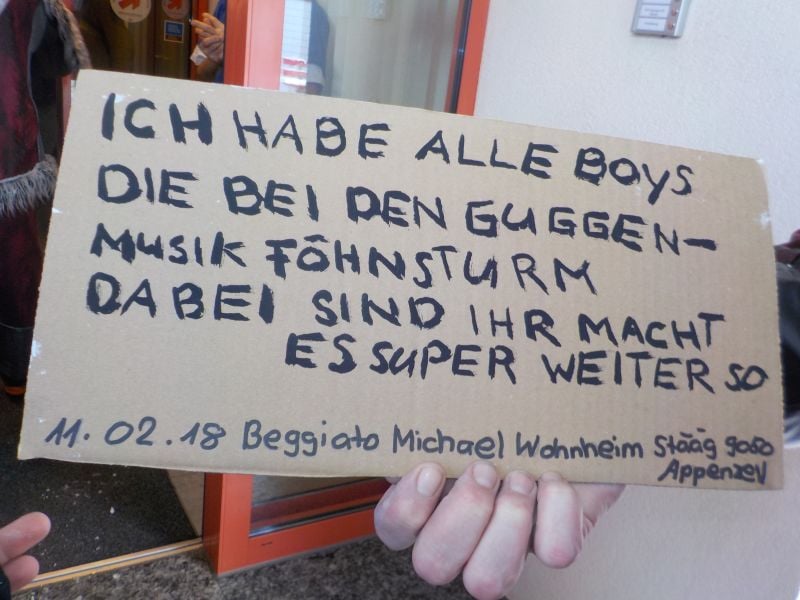 ICH HABE ALLE BOYS
DIE BEI DEN GUGGEN-
MUSIK FÖHNSTURM
DABEI SIND IHR MACHT
ES SUPER WEITER SO
11.02.18 Beggiato Michael Wohnheim Stääg 9050
Appenzell